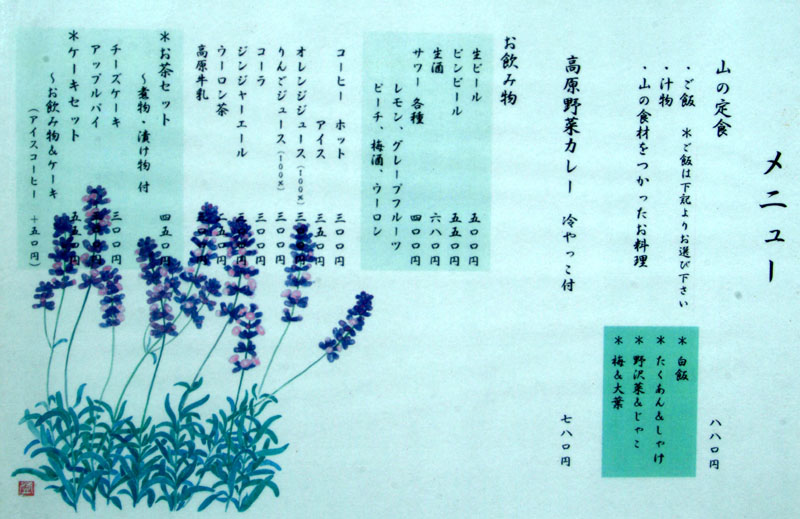 メニュー
山の定食 八八〇円
・ご飯 *ご飯は下記よりお選び下さい
・汁物
・山の食材をつかったお料理
*白飯
*たくあん&しゃけ
*野沢菜&じゃこ
*梅&大葉
高原野菜カレー 冷やっこ付 七八〇円
お飲み物
生ビール 五〇〇円
ビンビール 五五〇円
生酒 六八〇円
サワー 各種 四〇〇円
レモン、グレープフルーツ
ピーチ、梅酒、ウーロン
コーヒー ホット 三〇〇円
アイス 三五〇円
オレンジジュース(100%) 三〇〇円
りんごジュース(100%) 三〇〇円
コーラ 三〇〇円
ジンジャーエール
ウーロン茶
高原牛乳
*お茶セット 四五〇円
〜煮物・漬け物 付
チーズケーキ 三〇〇円
アップルパイ
*ケーキセット 五五〇円
〜お飲み物&ケーキ
(アイスコーヒー +五〇円)